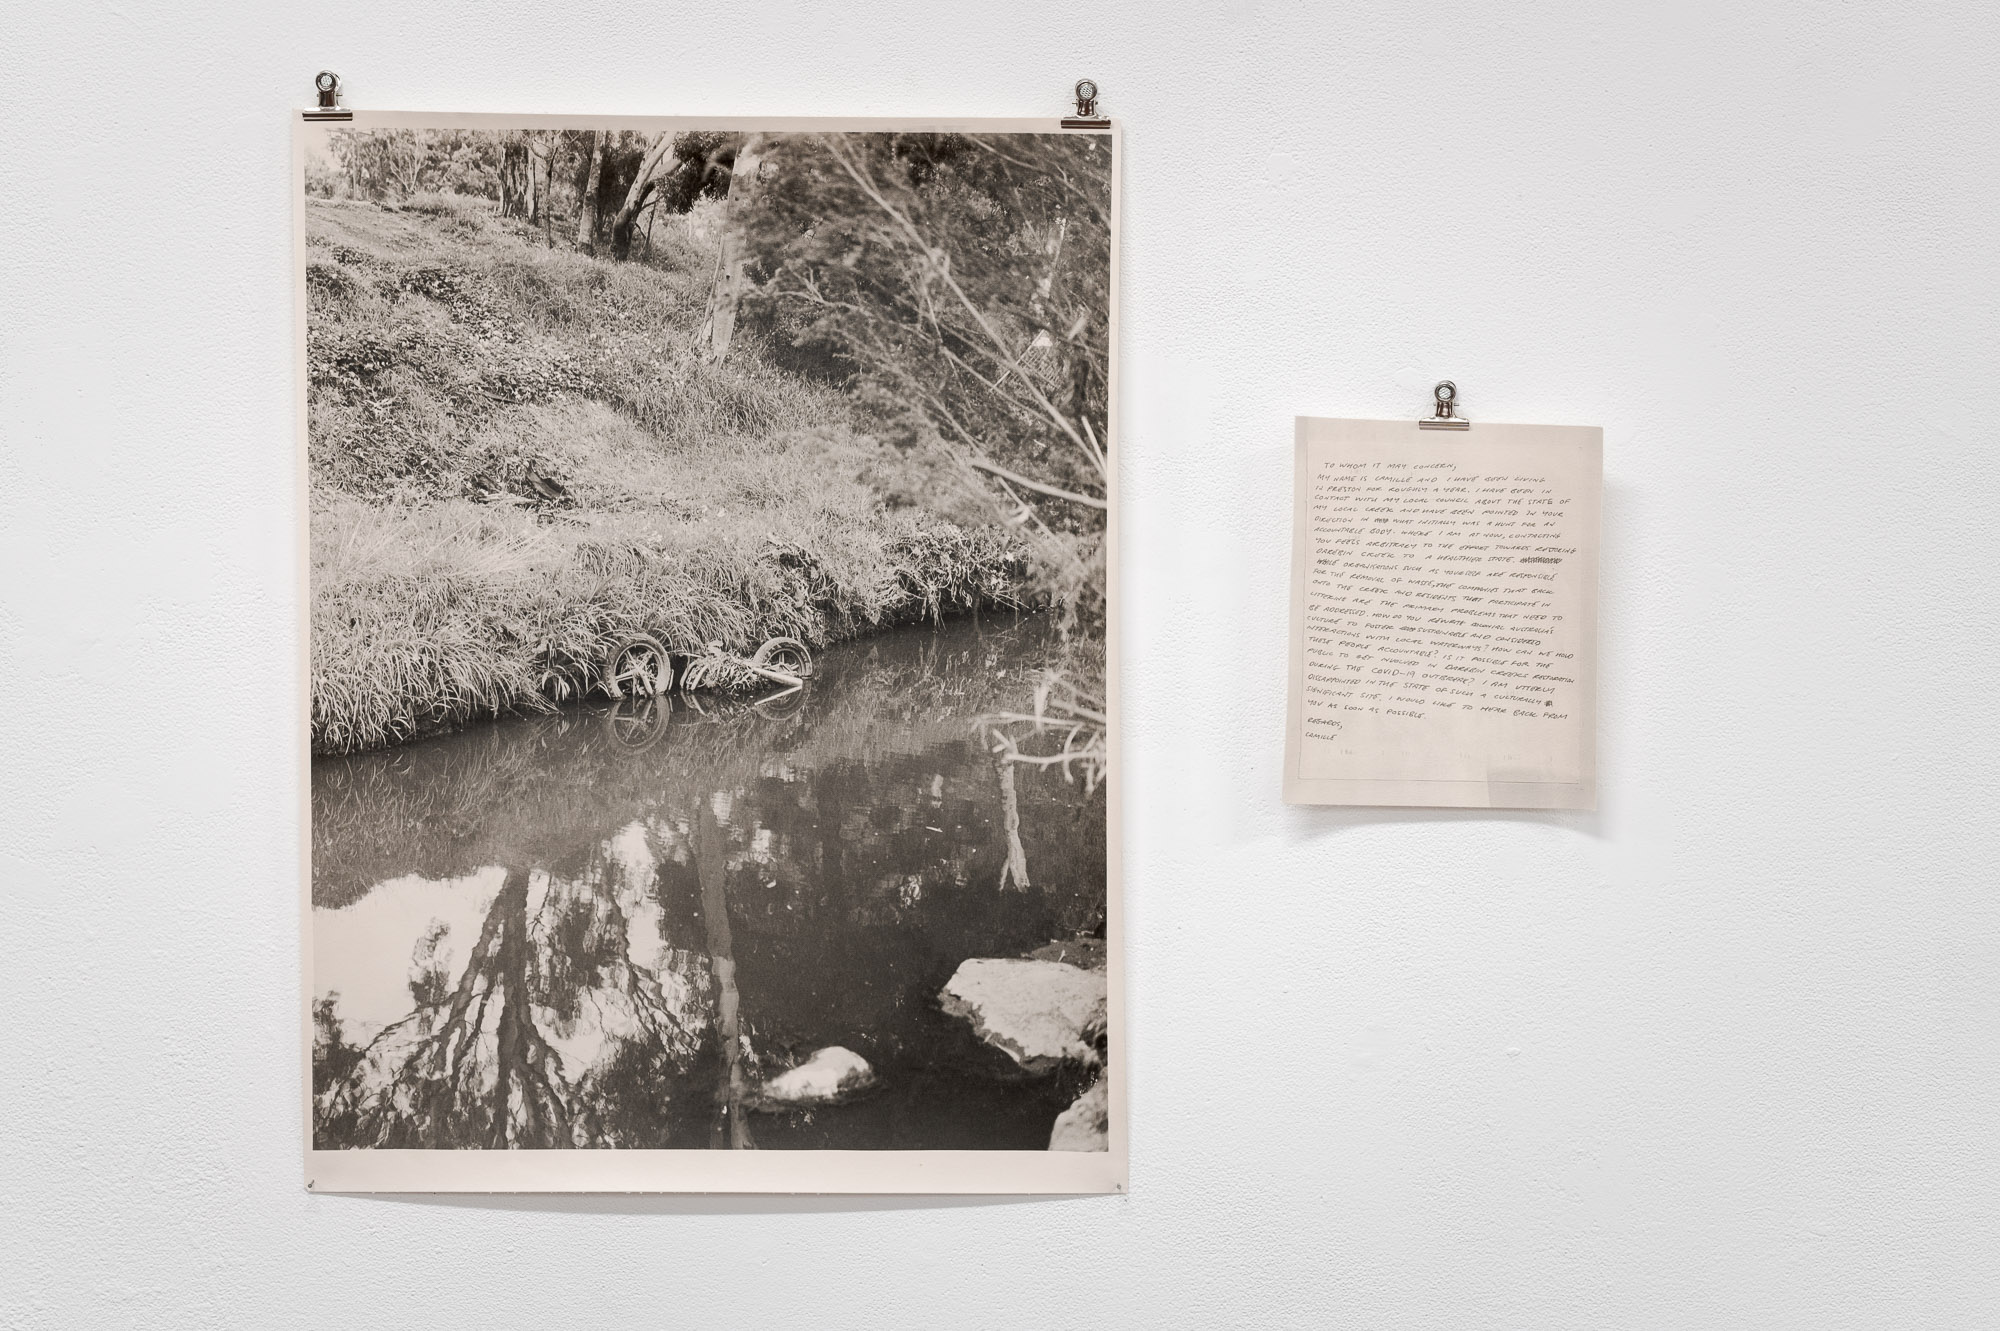 TO WHOM IT MAY CONCERN,
MY NAME IS CAMILLE AND I HAVE BEEN LIVING
IN PRESTON FOR ROUGHLY A YEAR. I HAVE BEEN IN
CONTACT WITH MY LOCAL COUNCIL ABOUT THE STATE OF
MY LOCAL CREEK AND HAVE BEEN POINTED IN YOUR
DIRECTION IN WHAT INITIALLY WAS A HUNT FOR AN
ACCOUNTABLE BODY. WHERE I AM AT NOW, CONTACTING
YOU FEELS ARBITRARY TO THE EFFORT TOWARDS RESTORING
DAREBIN CREEK TO A HEALTHIER STATE.
WHILE ORGANISATIONS SUCH AS YOURSELF ARE RESPONSIBLE
FOR THE REMOVAL OF WASTE, THE COMPANIES THAT BACK
ONTO THE CREEK AND RESIDENTS THAT PARTICIPATE IN
LITTERING ARE THE PRIMARY PROBLEMS THAT NEED TO
BE ADDRESSED. HOW DO YOU REWRITE COLONIAL AUSTRALIA'S
CULTURE TO FOSTER SUSTAINABLE AND CONSIDERED
INTERACTIONS WITH LOCAL WATERWAYS? HOW CAN WE HOLD
THESE PEOPLE ACCOUNTABLE? IS IT POSSIBLE FOR THE
PUBLIC TO GET INVOLVED IN DAREBIN CREEKS RESTORATION
DURING THE COVID-19 OUTBREAK? I AM UTTERLY
DISAPPOINTED IN THE STATE OF SUCH A CULTURALLY
SIGNIFICANT SITE. I WOULD LIKE TO HEAR BACK FROM
YOU AS SOON AS POSSIBLE.
REGARDS,
CAMILLE